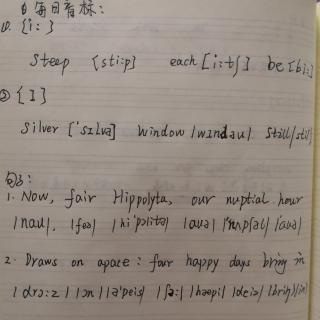 日每日音标:
①. [i:]
steep [sti:p] each [i:tʃ] be [bi:]
② [I]
silver ['sɪlvə] window |wɪndəu| still |stil|
句子:
1. Now, fair Hippolyta, our nuptial hour
|nau|. |feə| |hi'pɔlitə| |auə| |'nʌpʃəl| |'auə|
2. Draws on apace: four happy days bring in
| drɔ:z | |ɔn| |ə'peis| |fɔ:| |hæpi| |deiz| |briŋ| |in|